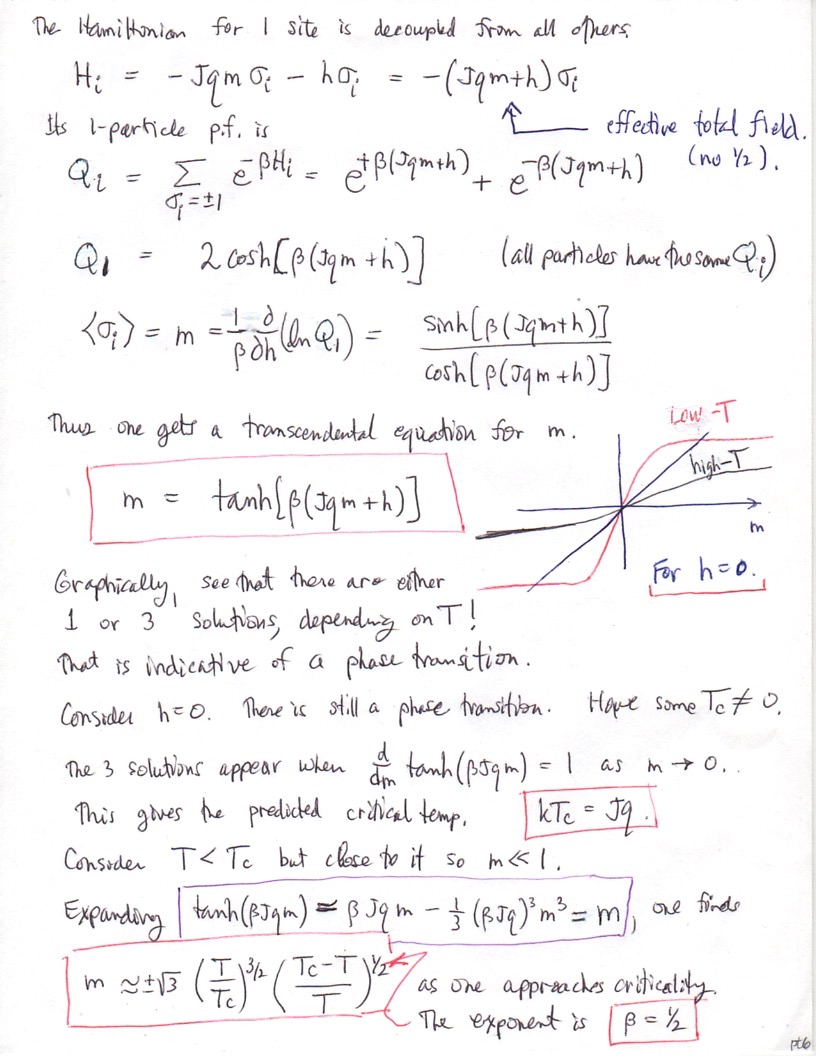 The Hamiltonian for 1 site is decoupled from all others.
Hᵢ = - Jqm σᵢ - hσᵢ = -(Jqm+h) σᵢ
effective total field.
(no ½).
Its 1-particle p.f. is
Qᵢ = Σ_{σᵢ=±1} e^{-βHᵢ} = e^{+β(Jqm+h)} + e^{-β(Jqm+h)}
Q₁ = 2 cosh[β(Jqm+h)] (all particles have the same Qᵢ)
⟨σᵢ⟩ = m = 1/β ∂/∂h (ln Q₁) = sinh[β(Jqm+h)] / cosh[β(Jqm+h)]
Thus one gets a transcendental equation for m.
m = tanh[β(Jqm+h)]
low-T
high-T
m
For h=0.
Graphically, see that there are either
1 or 3 solutions, depending on T!
That is indicative of a phase transition.
Consider h=0. There is still a phase transition. Have some Tc ≠ 0.
The 3 solutions appear when d/dm tanh(βJqm) = 1 as m → 0..
This gives the predicted critical temp. kTc = Jq.
Consider T < Tc but close to it so m ≪ 1.
Expanding tanh(βJqm) ≃ βJqm - ⅓ (βJq)³m³ = m, one finds
m ≈ ±√3 (T/Tc)^{3/2} ((Tc-T)/T)^{1/2} as one approaches criticality.
The exponent is β = ½
pt6